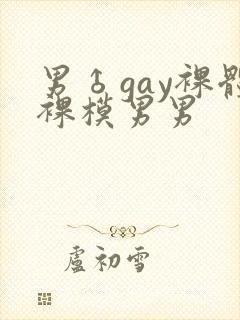 男♂gay裸體
裸模男男
盧初雪